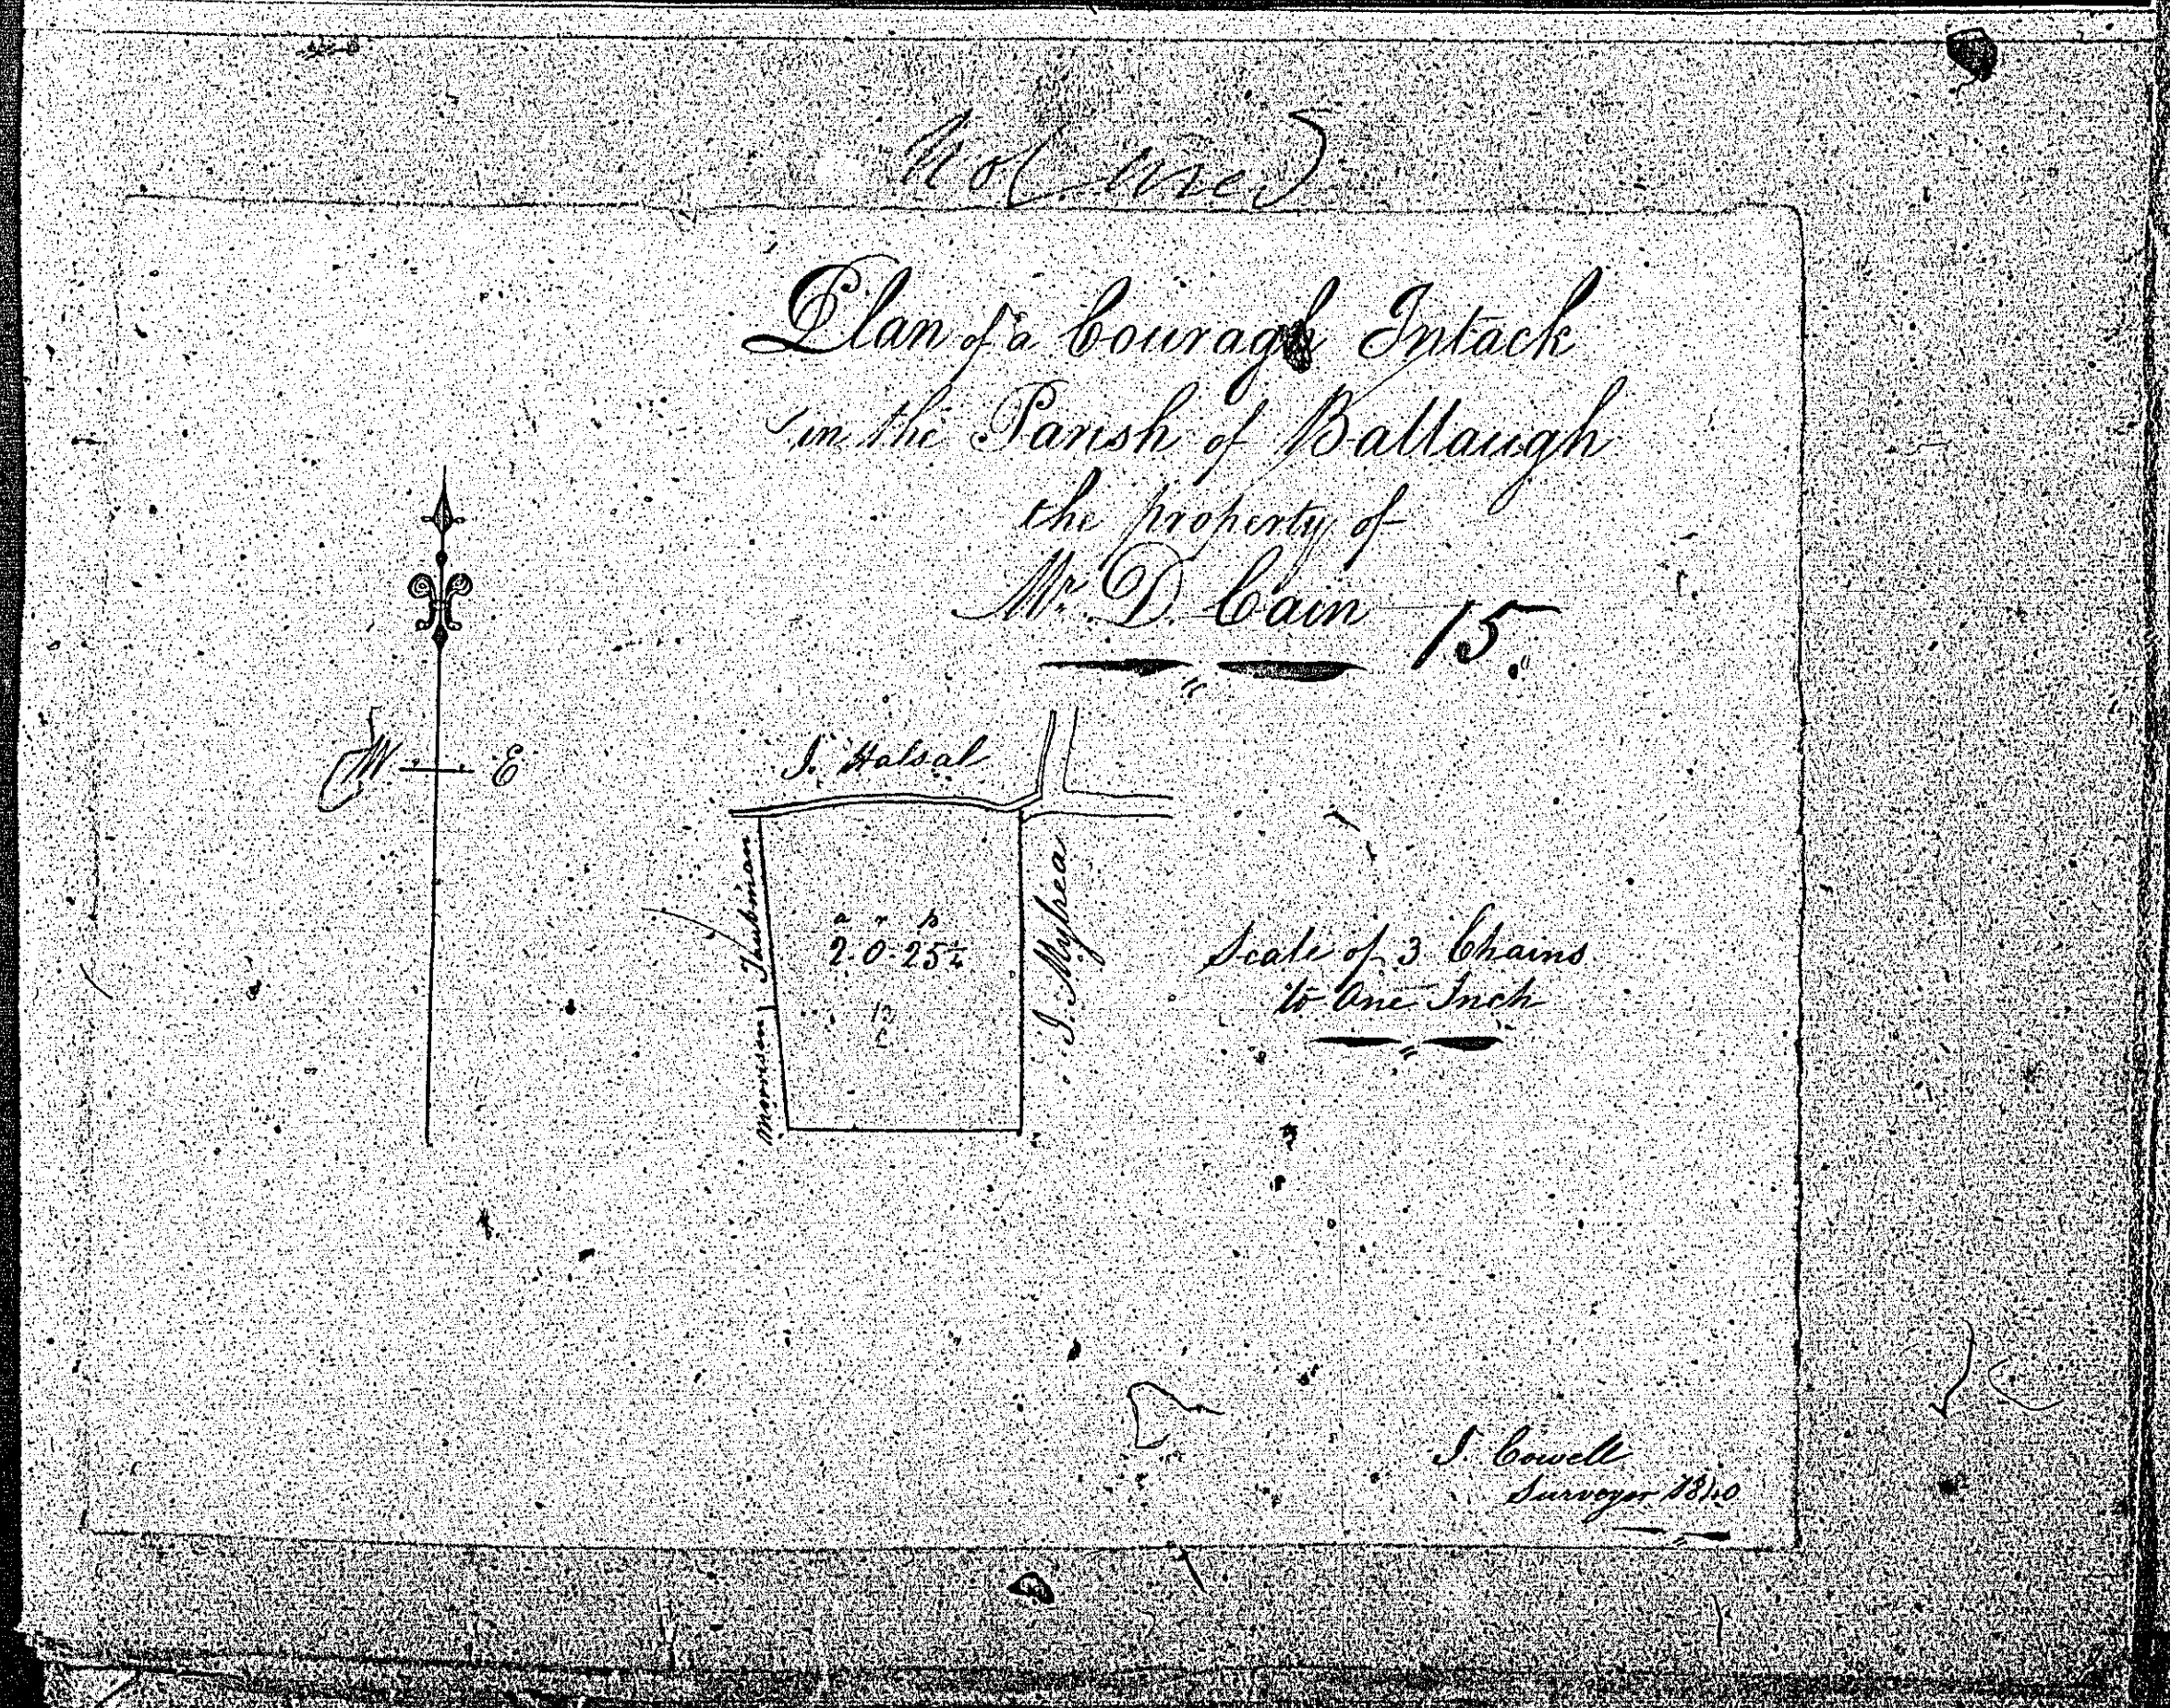 Not used
Plan of a Couragh Intack
in the Parish of Ballaugh
the property of
Mr. D. Cain
15.
W E
J. Halsal
Morrison Taubman
a r p
2 . 0 . 25 1/4
J. Mylrea
Scale of 3 Chains
to One Inch
J. Cowell
Surveyor 1840